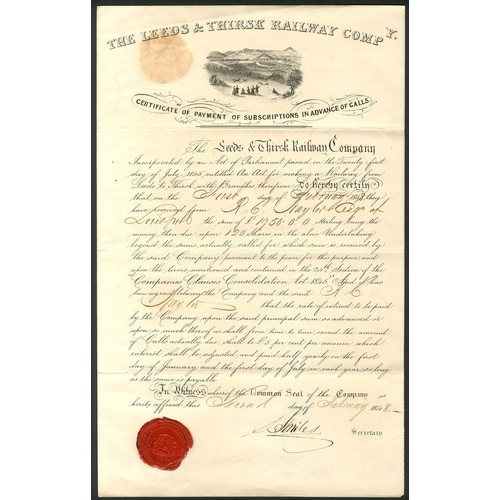 THE LEEDS & THIRSK RAILWAY COMPY.
CERTIFICATE OF PAYMENT OF SUBSCRIPTIONS IN ADVANCE OF CALLS.
The Leeds & Thirsk Railway Company
Incorporated by an Act of Parliament passed on the Twenty-first
day of July 1845, entitled An Act for making a Railway from
Leeds to Thirsk with Branches therefrom Do hereby certify
that on the First day of February 1848 they
have received from R. C. Naylor Esqr of
Liverpool the sum of £1950.0.0 Sterling, being the
money then due upon 120 Shares in the above Undertaking
beyond the sums actually called for, which sum is received by the
said Company pursuant to the power for this purpose; and
upon the terms mentioned and contained in the 24th Section of the
"Companies Clauses Consolidation Act 1845" And it has
been agreed between the Company and the said R. C.
Naylor that the rate of interest to be paid
by the Company upon the said principal sum so advanced or
upon so much thereof as shall from time to time exceed the amount
of Calls actually due, shall be £5 per cent per annum, which
interest shall be adjusted and paid half yearly on the first
day of January and the first day of July in each year so long
as the same is payable
In Witness whereof the Common Seal of the Company is
hereto affixed this Second day of February 1848.
S. Smiles
Secretary